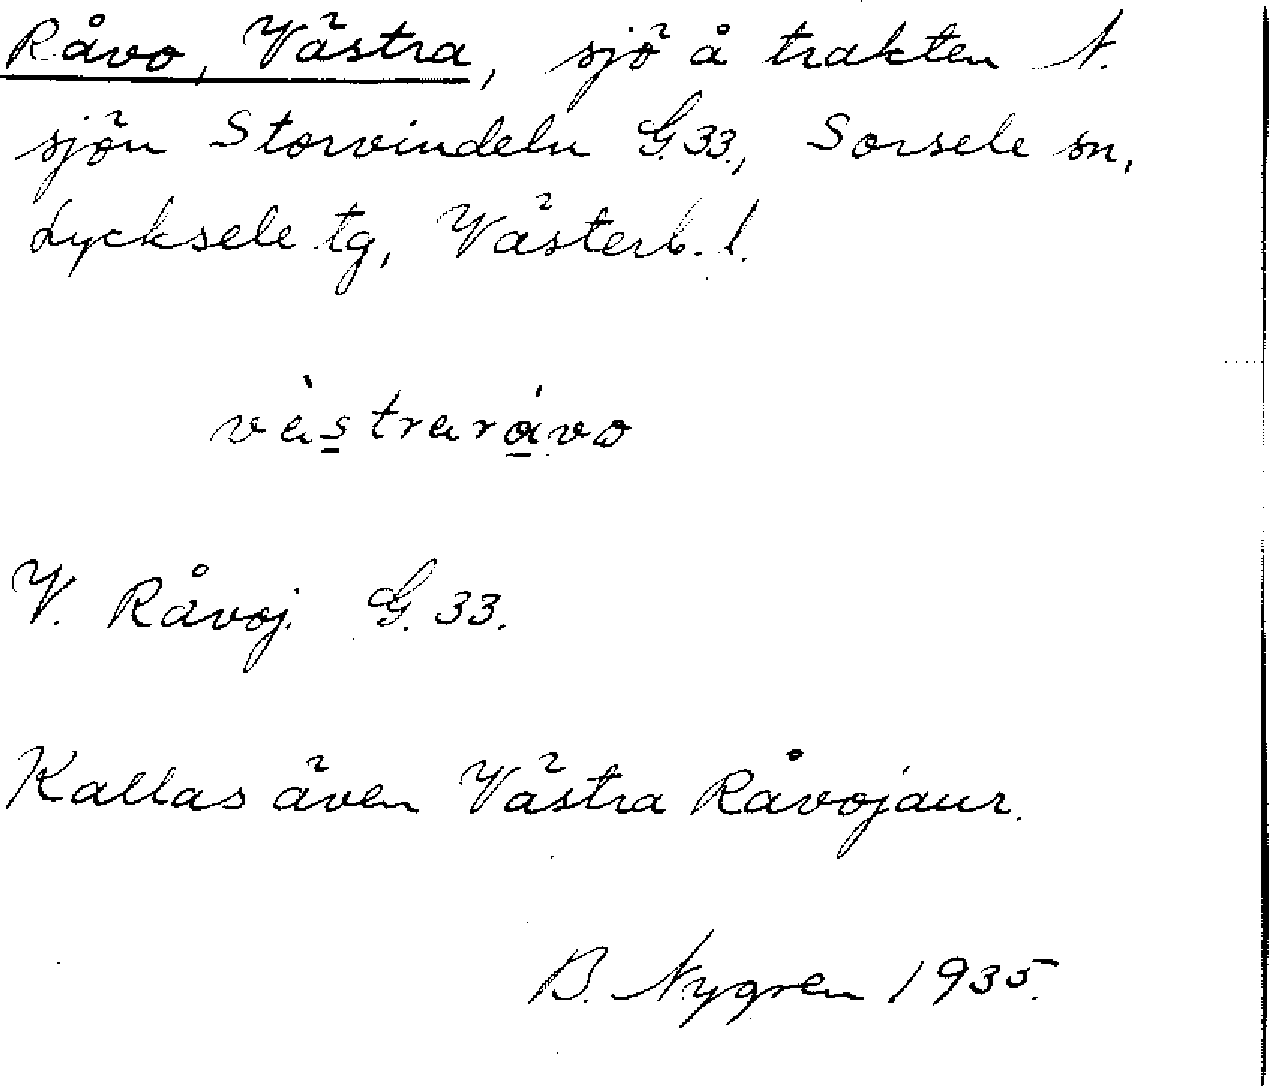 Råvo, Västra, sjö å trakten N.
sjön Storvindeln G.33., Sorsele sn,
Lycksele tg, Västerb. l.
vàstraråvo
V. Råvoj. G. 33.
Kallas även Västra Råvojaur.
B. Nygren 1935.